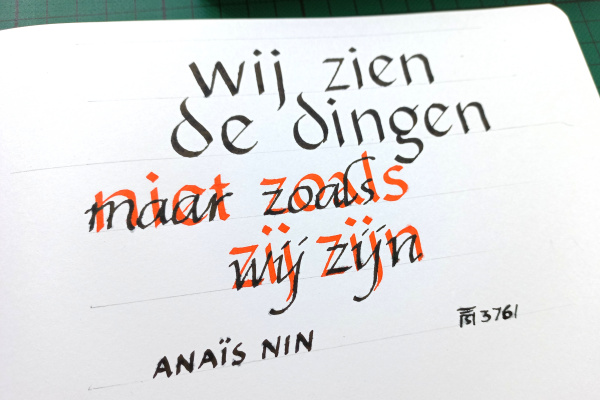 wij zien
de dingen
niet zoals
maar zoals
zij zijn
wij zijn
ANAÏS NIN
3761